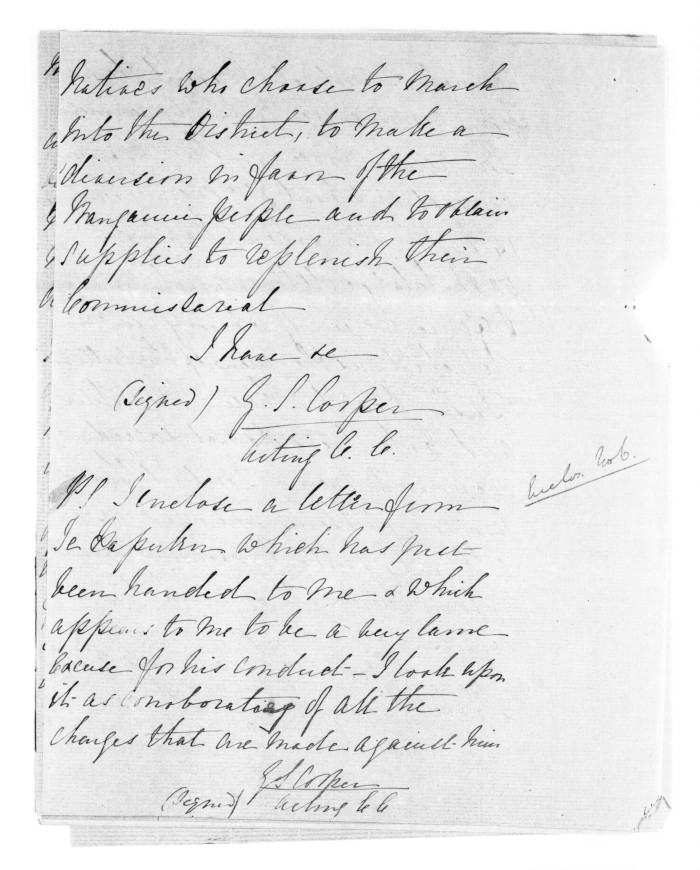 Natives who choose to march
into the District, to make a
diversion in favor of the
Wanganui people and to obtain
supplies to replenish their
Commissariat
I have &c
(signed) G. S. Cooper
Acting C. C.
PS I enclose a letter from
Te Hapuku which has just
been handed to me & which
appears to me to be a very lame
excuse for his conduct - I look upon
it as corroborating of all the
charges that are made against him
G S Cooper
(signed) Acting C C
Enclos. No 6.